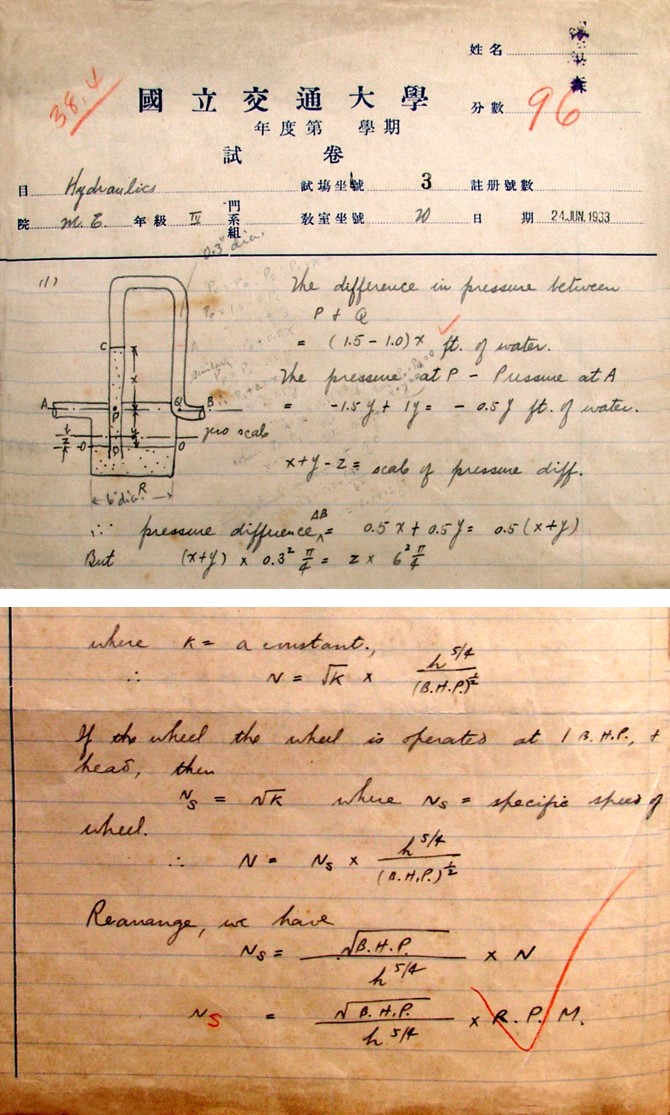 姓名
38.4
國立交通大學
分數 96
年度第 學期
試 卷
目 Hydraulics 試場坐號 3 註册號數
院 M.E. 年級 IV 門系組 教室坐號 20 日 期 24.JUN.1933
0.3" dia.
(1)
The difference in pressure between
P & Q
= (1.5 - 1.0)x ft. of water.
The pressure at P - Pressure at A
= -1.5y + 1y = -0.5y ft. of water.
C
x
A P Q B
zero scale
y
z
O D O
R
6" dia.
x+y-z = scale of pressure diff.
∴ pressure diffuence AB = 0.5x + 0.5y = 0.5(x+y)
But (x+y) x 0.3² π/4 = z x 6² π/4
where K = a constant.,
∴ N = √K x h^5/4 / (B.H.P.)^1/2
If the wheel the wheel is operated at 1 B.H.P., +
head, then
Ns = √K where Ns = specific speed of
wheel.
∴ N = Ns x h^5/4 / (B.H.P.)^1/2
Rearrange, we have
Ns = √B.H.P. / h^5/4 x N
Ns = √B.H.P. / h^5/4 x R.P.M.